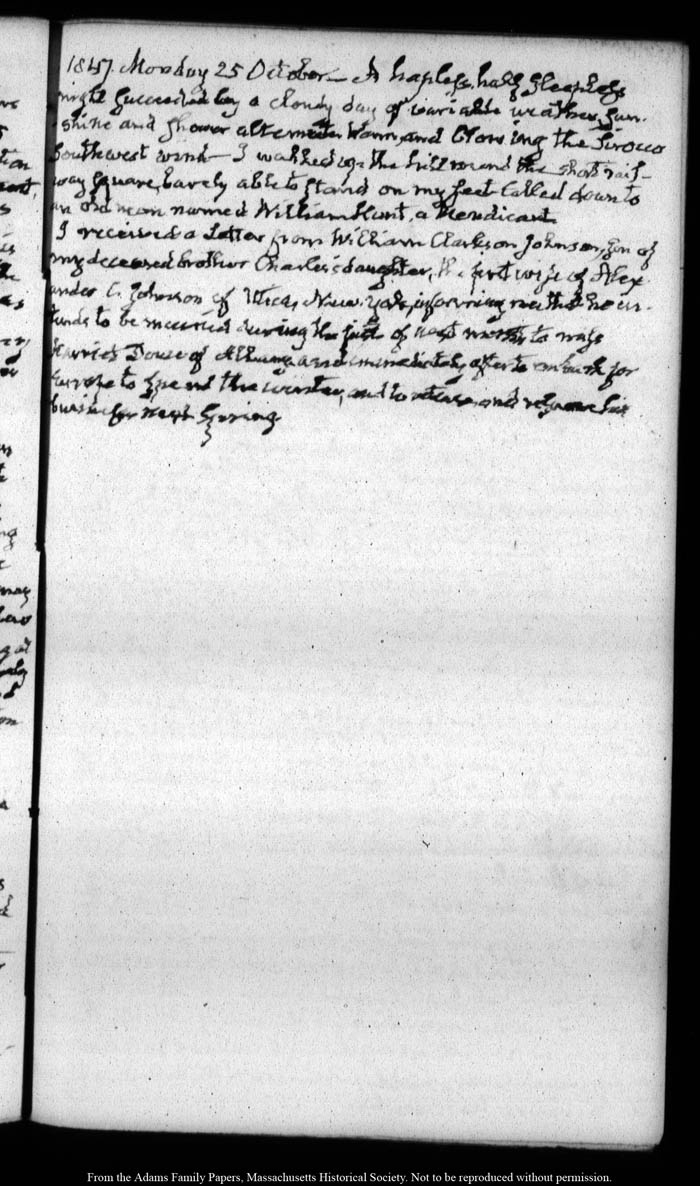 1847. Monday 25 October — A hapless, half sleepless
night succeeded by a cloudy day of variable weather, Sun-
shine and shower alternate. Warm, and blowing the Sirocco
Southwest wind — I walked up the hill round the short rail-
way square, barely able to stand on my feet. Called down to
an old man named William Hunt, a Mendicant.
I received a Letter from William Clarkson Johnson, Son of
my deceased brother Charles's daughter, the first wife of Alex-
ander C. Johnson of Utica, New-York, informing me that he in-
tends to be married during the first of next month to miss
of Albany and immediately after to embark for
Europe to spend the winter, and to return and resume his
business next Spring
ve
tion
s
the
as
ng
may
From the Adams Family Papers, Massachusetts Historical Society. Not to be reproduced without permission.